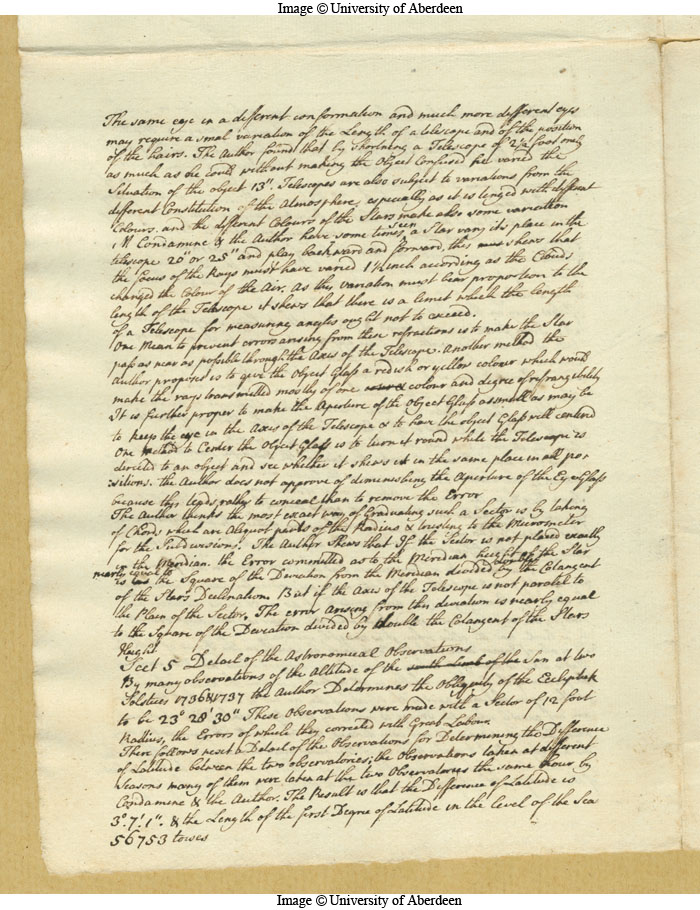 Image © University of Aberdeen
The same eye in a different conformation and much more different eyes
may require a smal variation of the Length of a telescope and of the position
of the hairs. The Author found that by shortning a Telescope of 2½ foot only
as much as he could without making the Object Confused he varied the
Situation of the object 13". Telescopes are also subject to variations from the
different Constitution of the Atmosphere, especially as it is tinged with different
Colours. and the different Colours of the Stars make also some variation
M Condamine & the Author have some times seen a Star vary its place in the
telescope 20" or 25" and play backward and forward, this shews that
the focus of the Rays must have varied 1½ inch according as the Clouds
changed the Colour of the Air. As this variation must bear proportion to the
length of the Telescope it shews that there is a limit which the length
of a Telescope for measuring angles ought not to exceed.
One Mean to prevent errors arising from these refractions is to make the Star
pass as near as possible through the Axis of the Telescope. Another method the
Author proposes is to give the Object Glass a redish or yellow colour which would
make the rays transmitted mostly of one colour and degree of refrangibility
It is further proper to make the Aperture of the Object Glass as small as may be
to keep the eye in the Axis of the Telescope & to have the object Glass well centered
One Method to Center the Object Glass is to turn it round while the Telescope is
directed to an object and see whether it shews it in the same place in all po-
:sitions. the Author does not approve of diminishing the Aperture of the Eye Glass
because this tends rather to conceal than to remove the Error
The Author thinks the most exact way of Graduating such a Sector is by taking
of Chords which are Aliquot parts of the Radius & trusting to the Micrometer
for the Subdivisions. The Author Shews that If the Sector is not placed exactly
in the Meridian. the Error committed as to the Meridian height of the Star
is nearly equal to the Square of the Deviation from the Meridian divided by double the Cotangent
of the Stars Declination. But if the Axis of the Telescope is not parallel to
the Plain of the Sector. The error arising from this deviation is nearly equal
to the Square of the Deviation divided by double the Cotangent of the Stars
Height
Sect 5 Detail of the Astronomical Observations
By many observations of the Altitude of the south limb of the Sun at two
Solstices 1736 & 1737 the Author Determines the Obliquity of the Ecliptick
to be 23° 28' 30" These Observations were made with a Sector of 12 foot
Radius, the Errors of which they corrected with Great Labour
There follows next a Detail of the Observations for Determining the Difference
of Latitude between the two observatories; the Observations taken at different
Seasons many of them were taken at the two Observatories the same hour by
Condamine & the Author. The Result is that the Difference of Latitude is
3°. 7'. 1". & the Length of the first Degree of Latitude in the level of the Sea
56753 toises
Image © University of Aberdeen